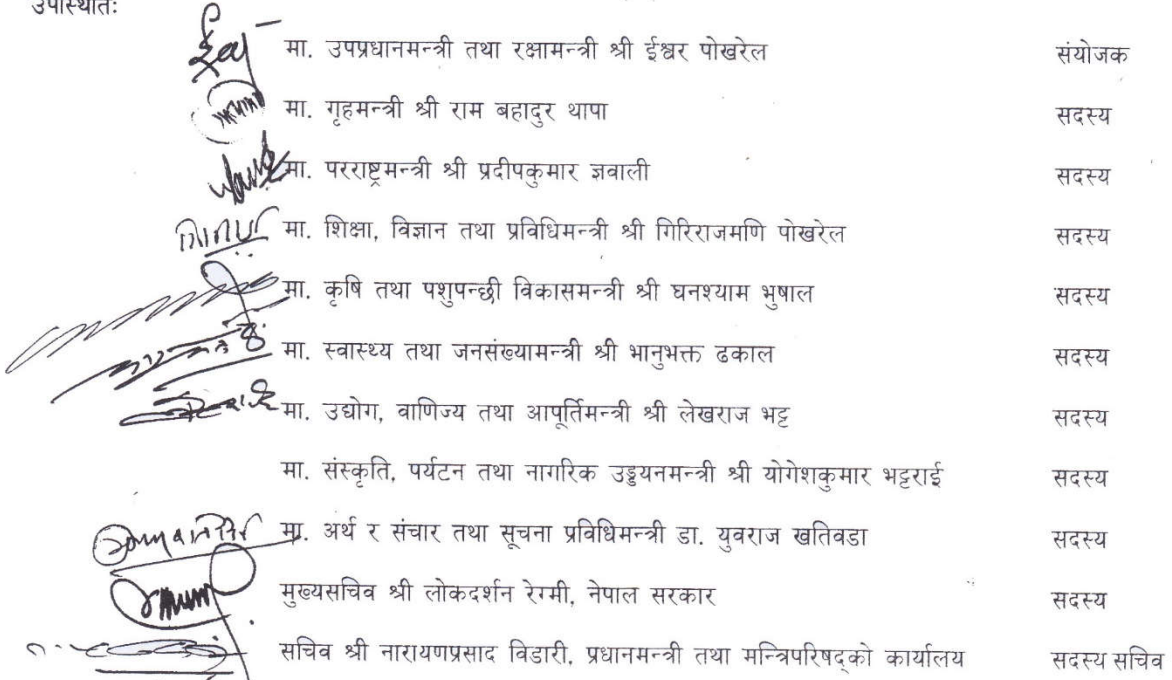 उपस्थितिः
मा. उपप्रधानमन्त्री तथा रक्षामन्त्री श्री ईश्वर पोखरेल संयोजक
मा. गृहमन्त्री श्री राम बहादुर थापा सदस्य
मा. परराष्ट्रमन्त्री श्री प्रदीपकुमार ज्ञवाली सदस्य
मा. शिक्षा, विज्ञान तथा प्रविधिमन्त्री श्री गिरिराजमणि पोखरेल सदस्य
मा. कृषि तथा पशुपन्छी विकासमन्त्री श्री घनश्याम भुषाल सदस्य
मा. स्वास्थ्य तथा जनसंख्यामन्त्री श्री भानुभक्त ढकाल सदस्य
मा. उद्योग, वाणिज्य तथा आपूर्तिमन्त्री श्री लेखराज भट्ट सदस्य
मा. संस्कृति, पर्यटन तथा नागरिक उड्डयनमन्त्री श्री योगेशकुमार भट्टराई सदस्य
मा. अर्थ र संचार तथा सूचना प्रविधिमन्त्री डा. युवराज खतिवडा सदस्य
मुख्यसचिव श्री लोकदर्शन रेग्मी, नेपाल सरकार सदस्य
सचिव श्री नारायणप्रसाद विडारी, प्रधानमन्त्री तथा मन्त्रिपरिषद्को कार्यालय सदस्य सचिव